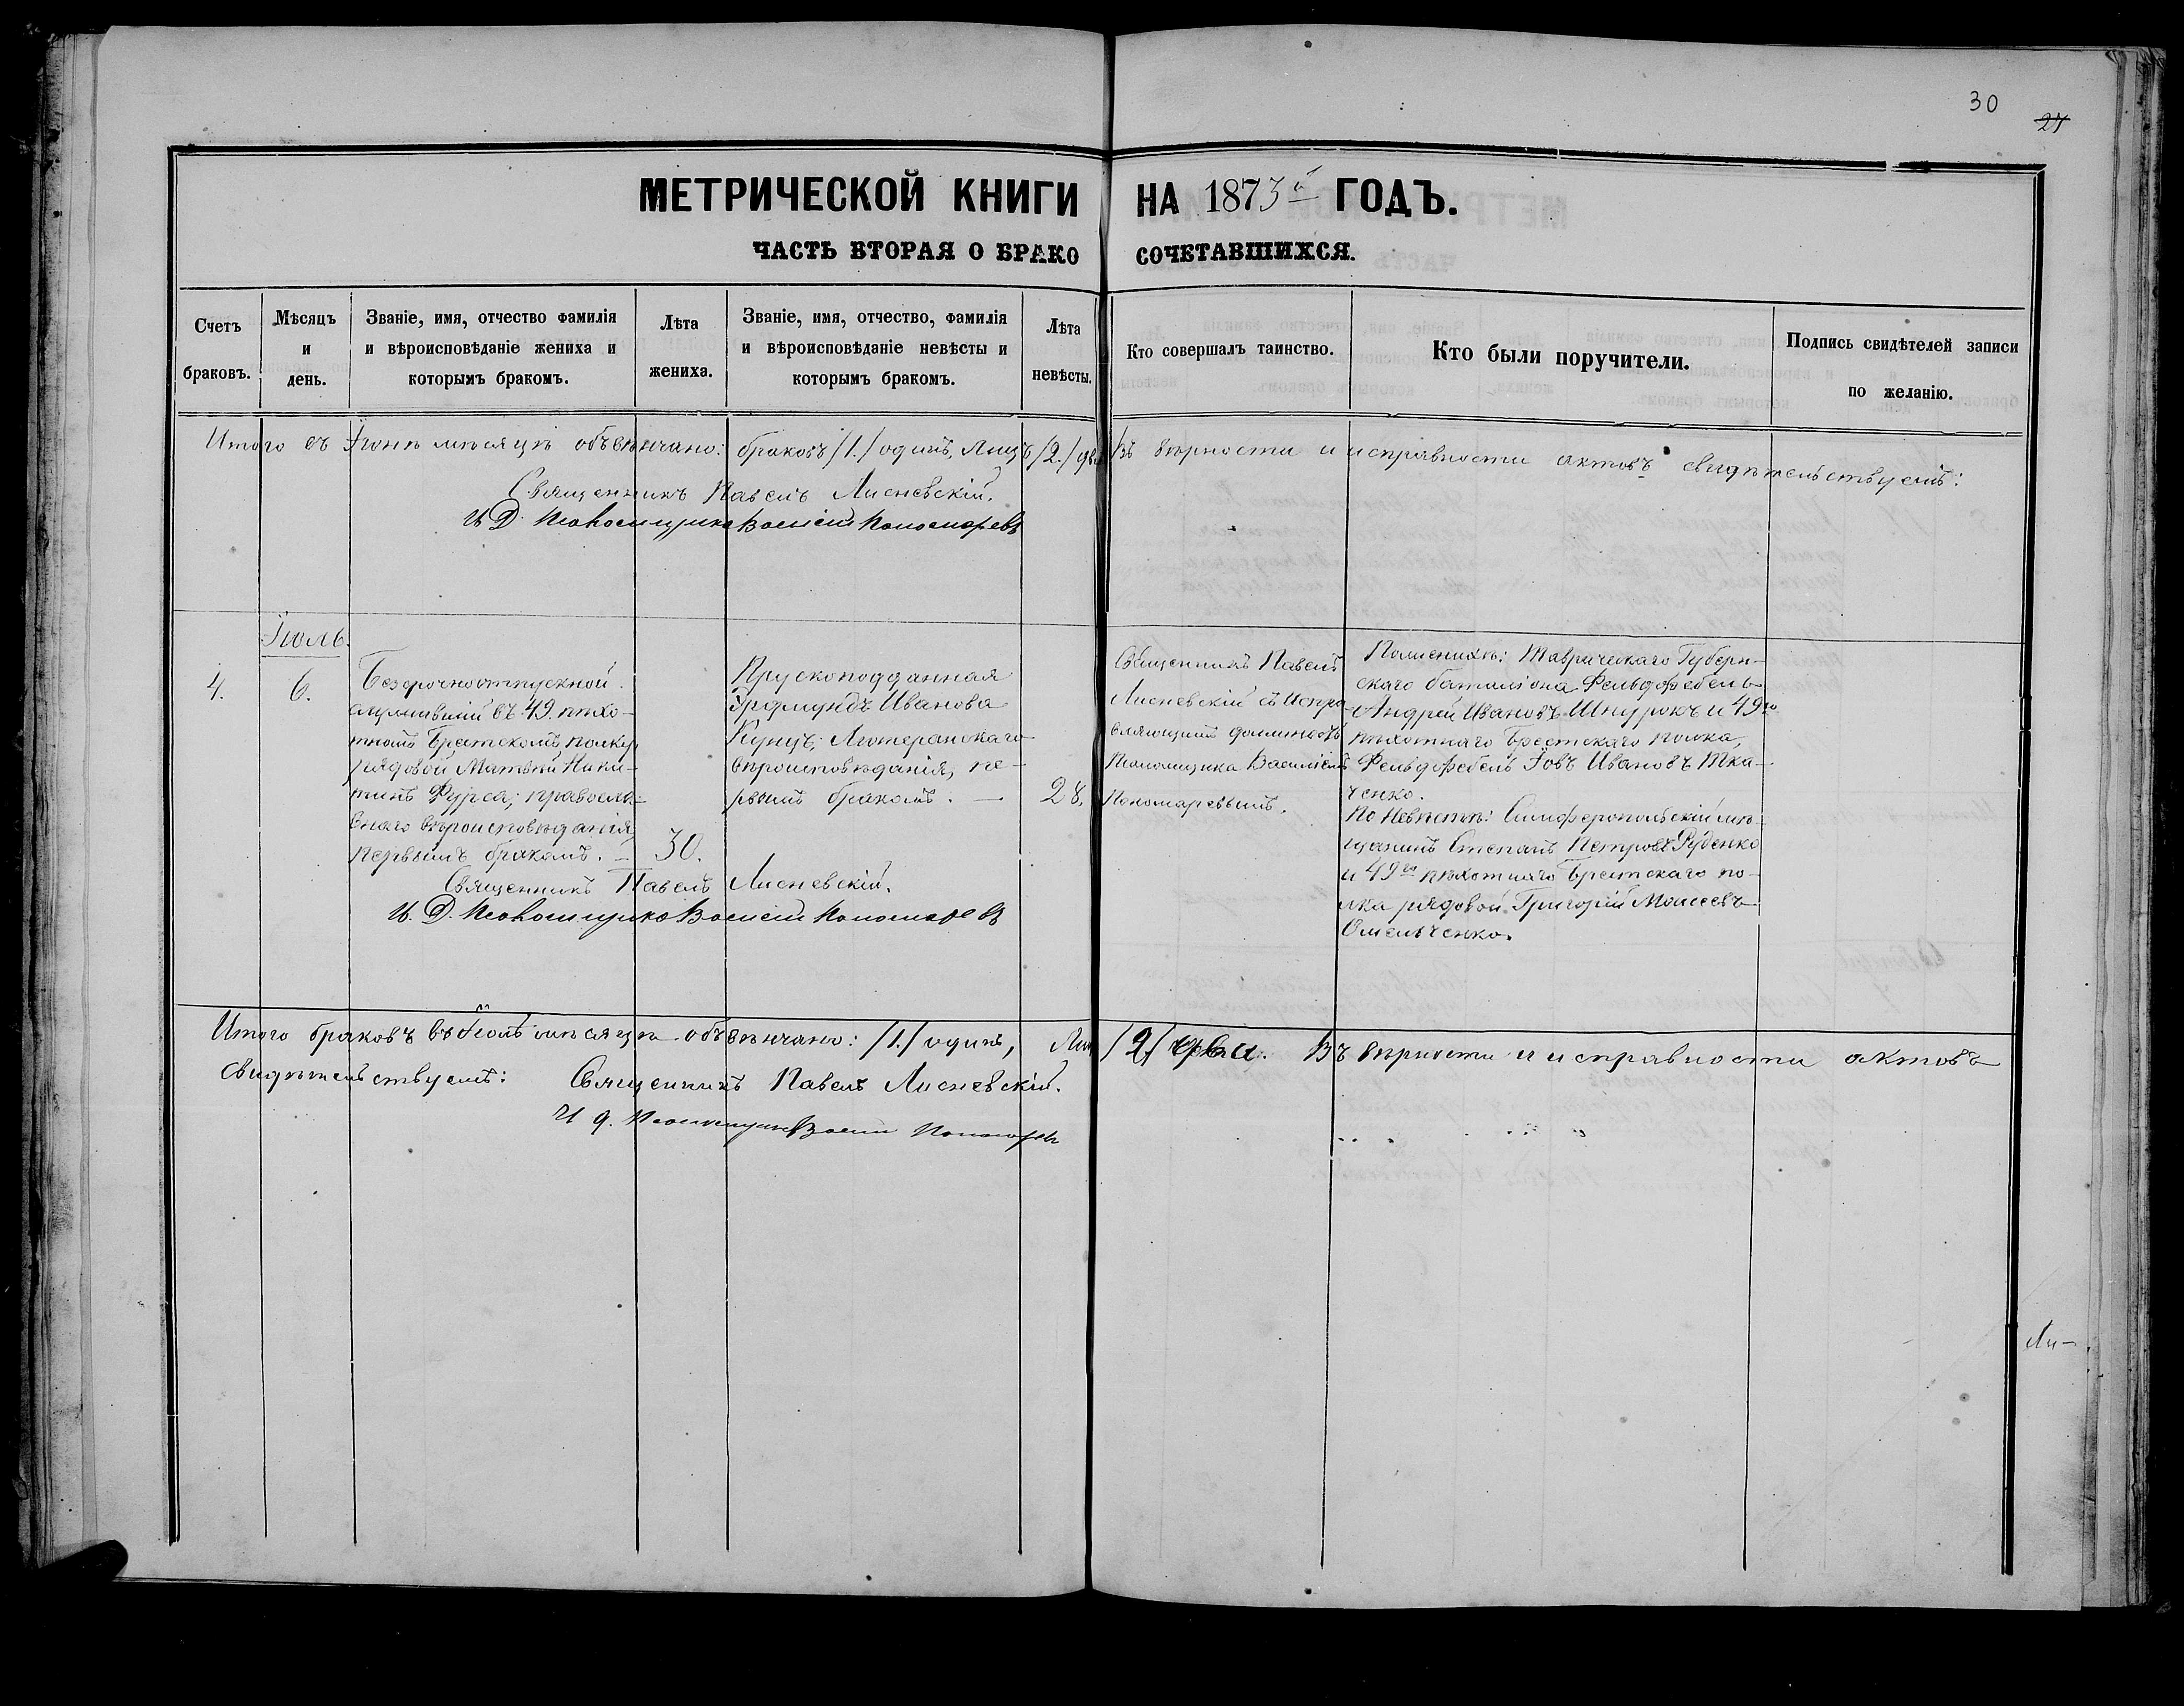 30
27
МЕТРИЧЕСКОЙ КНИГИ НА 1873й ГОДЪ.
ЧАСТЬ ВТОРАЯ О БРАКОСОЧЕТАВШИХСЯ.
Счетъ браковъ.
Мѣсяцъ и день.
Званіе, имя, отчество фамилія и вѣроисповѣданіе жениха и которымъ бракомъ.
Лѣта жениха.
Званіе, имя, отчество, фамилія и вѣроисповѣданіе невѣсты и которымъ бракомъ.
Лѣта невѣсты.
Кто совершалъ таинство.
Кто были поручители.
Подпись свидѣтелей записи по желанію.
Итого въ Іюнѣ мѣсяцѣ обвѣнчано: браковъ /1./ одинъ, Лицъ /2./ два Въ вѣрности и исправности актовъ свидѣтельствуемъ:
Священникъ Павелъ Лисневскій.
И. Д. Псаломщика Василій Пономаревъ
Іюль.
4.
6.
Безсрочноотпускной
служившій въ 49. пѣхо-
тномъ Брестскомъ полку
рядовой Матвѣй Ники-
тинъ Фурса; правосла-
внаго вѣроисповѣданія,
первымъ бракомъ. —
30.
Прускоподданная
Эрдмундъ Иванова
Кунцъ; Лютеранскаго
вѣроисповѣданія, пе-
рвымъ бракомъ. —
28.
Священникъ Павелъ
Лисневскій съ Испра-
вляющимъ должность
Псаломщика Василіемъ
Пономаревымъ.
По женихѣ: Таврическаго Губерн-
скаго баталіона Фельдфебель
Андрей Ивановъ Шнурокъ и 49го
пѣхотнаго Брестскаго полка,
Фельдфебель Іовъ Ивановъ Тка-
ченко.
По Невѣстѣ: Симферопольскій мѣ-
щанинъ Степанъ Петровъ Руденко
и 49го пѣхотнаго Брестскаго по-
лка рядовой Григорій Моисеевъ
Омельченко.
Священникъ Павелъ Лисневскій.
И. Д. Псаломщика Василій Пономаревъ
Итого браковъ въ Іюлѣ мѣсяцѣ обвѣнчано: /1./ одинъ, Лицъ /2/ два. Въ вѣрности и исправности актовъ
свидѣтельствуемъ: Священникъ Павелъ Лисневскій.
И д. Псаломщика Василій Пономаревъ
Ли-